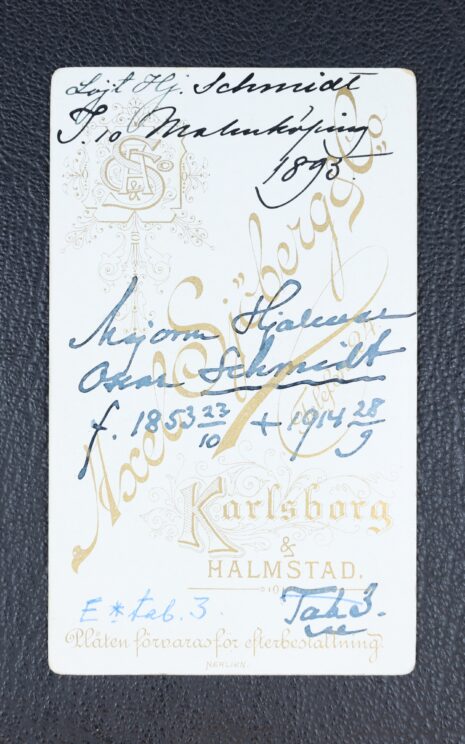 Löjt Hj. Schmidt
I.10 Malmköping
1893.
Axel Sjöberg & Co
Majoren Hjalmar
Oscar Schmidt
f. 1853 23/10 + 1914 28/9
Karlsborg
&
HALMSTAD.
E * tab. 3.
Tab 3.
Plåten förvaras för efterbeställning.
NERLIEN.